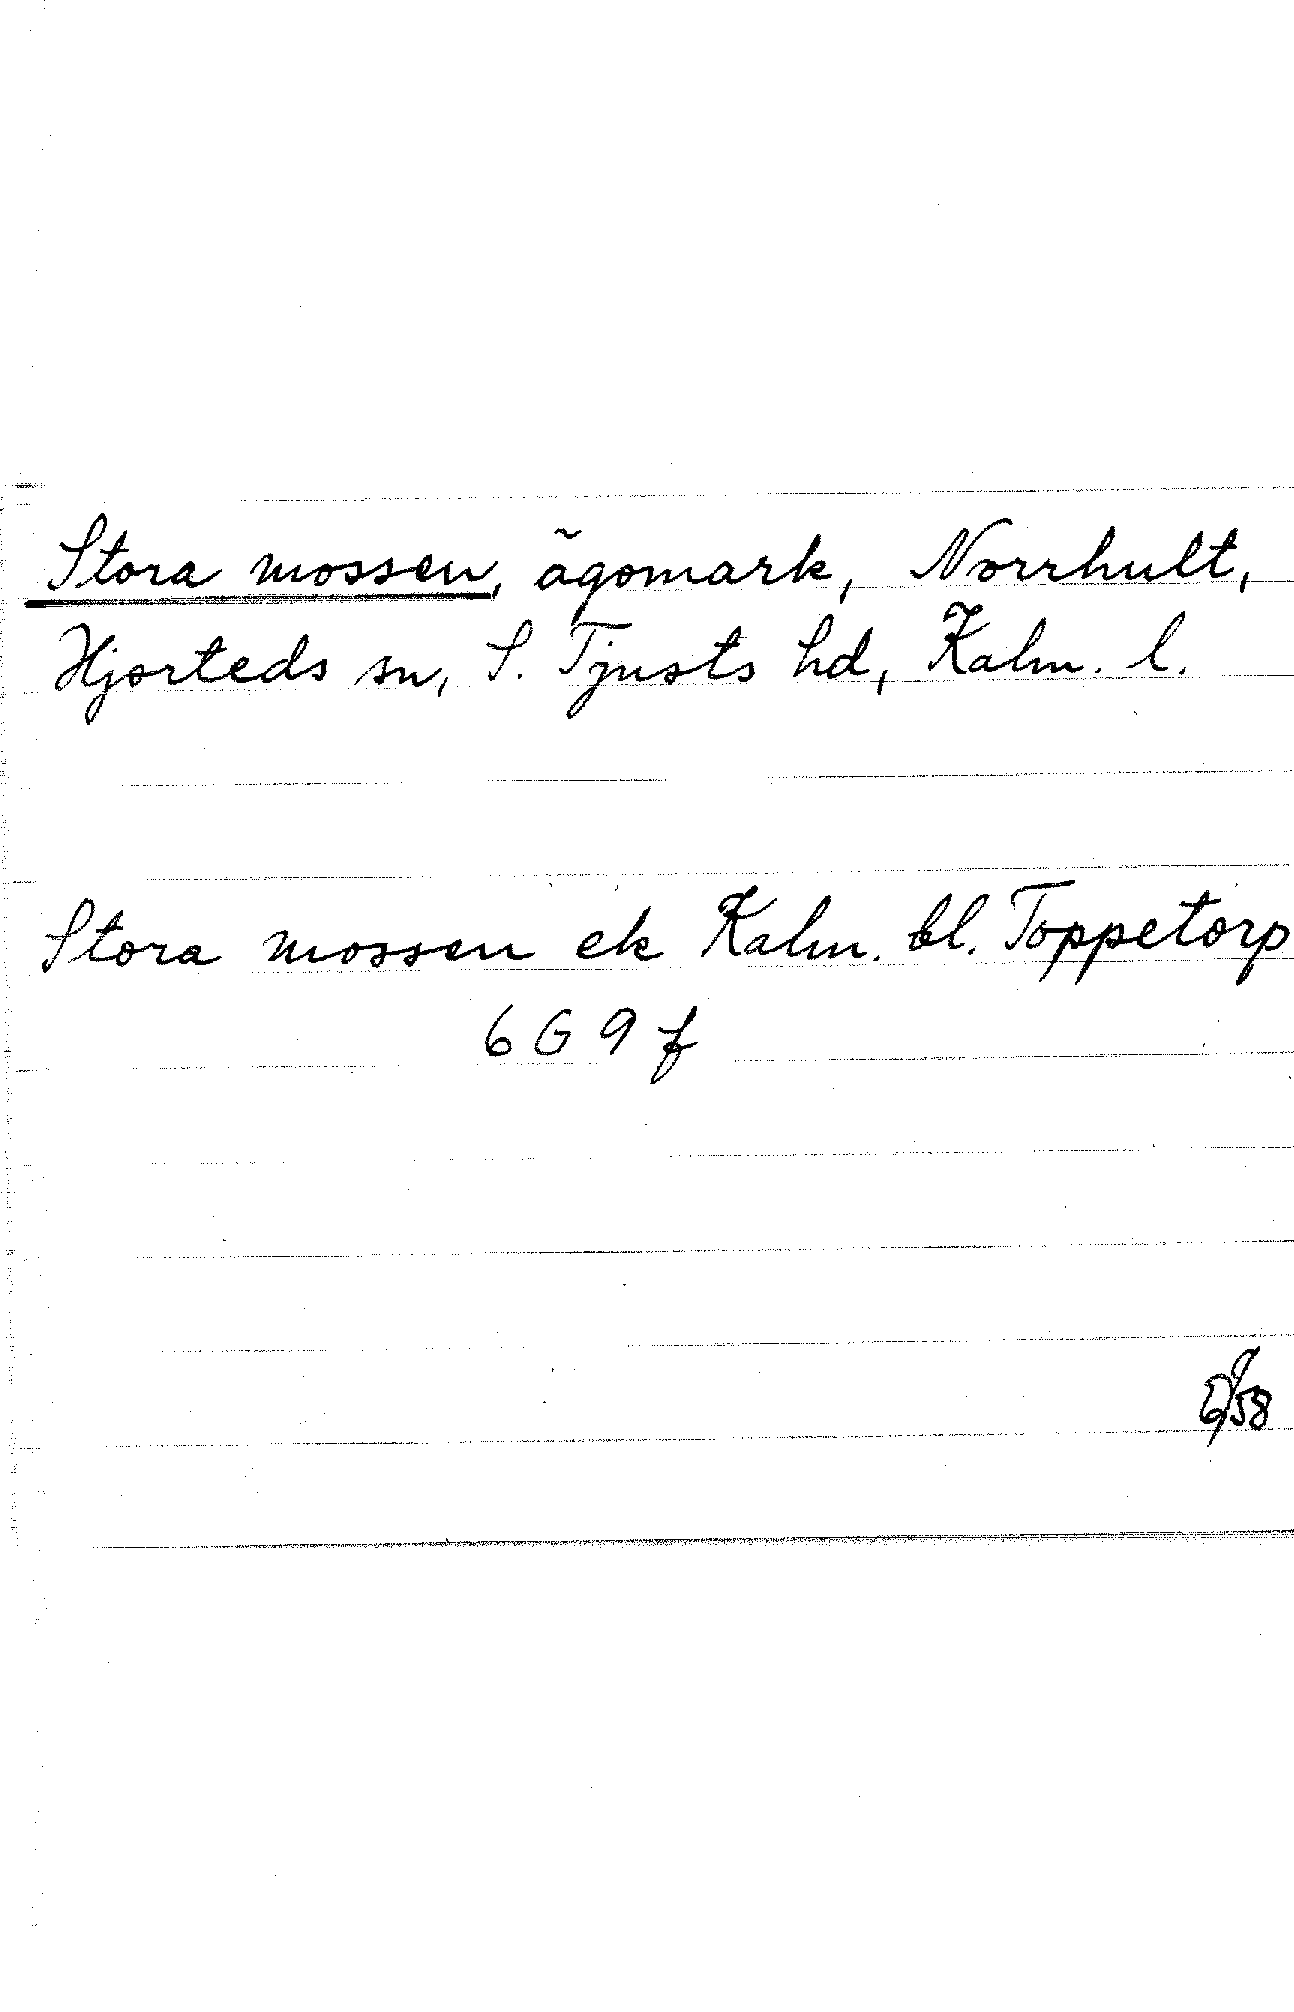 Stora mossen, ägomark, Norrhult,
Hjorteds sn, S. Tjusts hd, Kalm. l.
Stora mossen ek Kalm. bl. Toppetorp
6 G 9 f